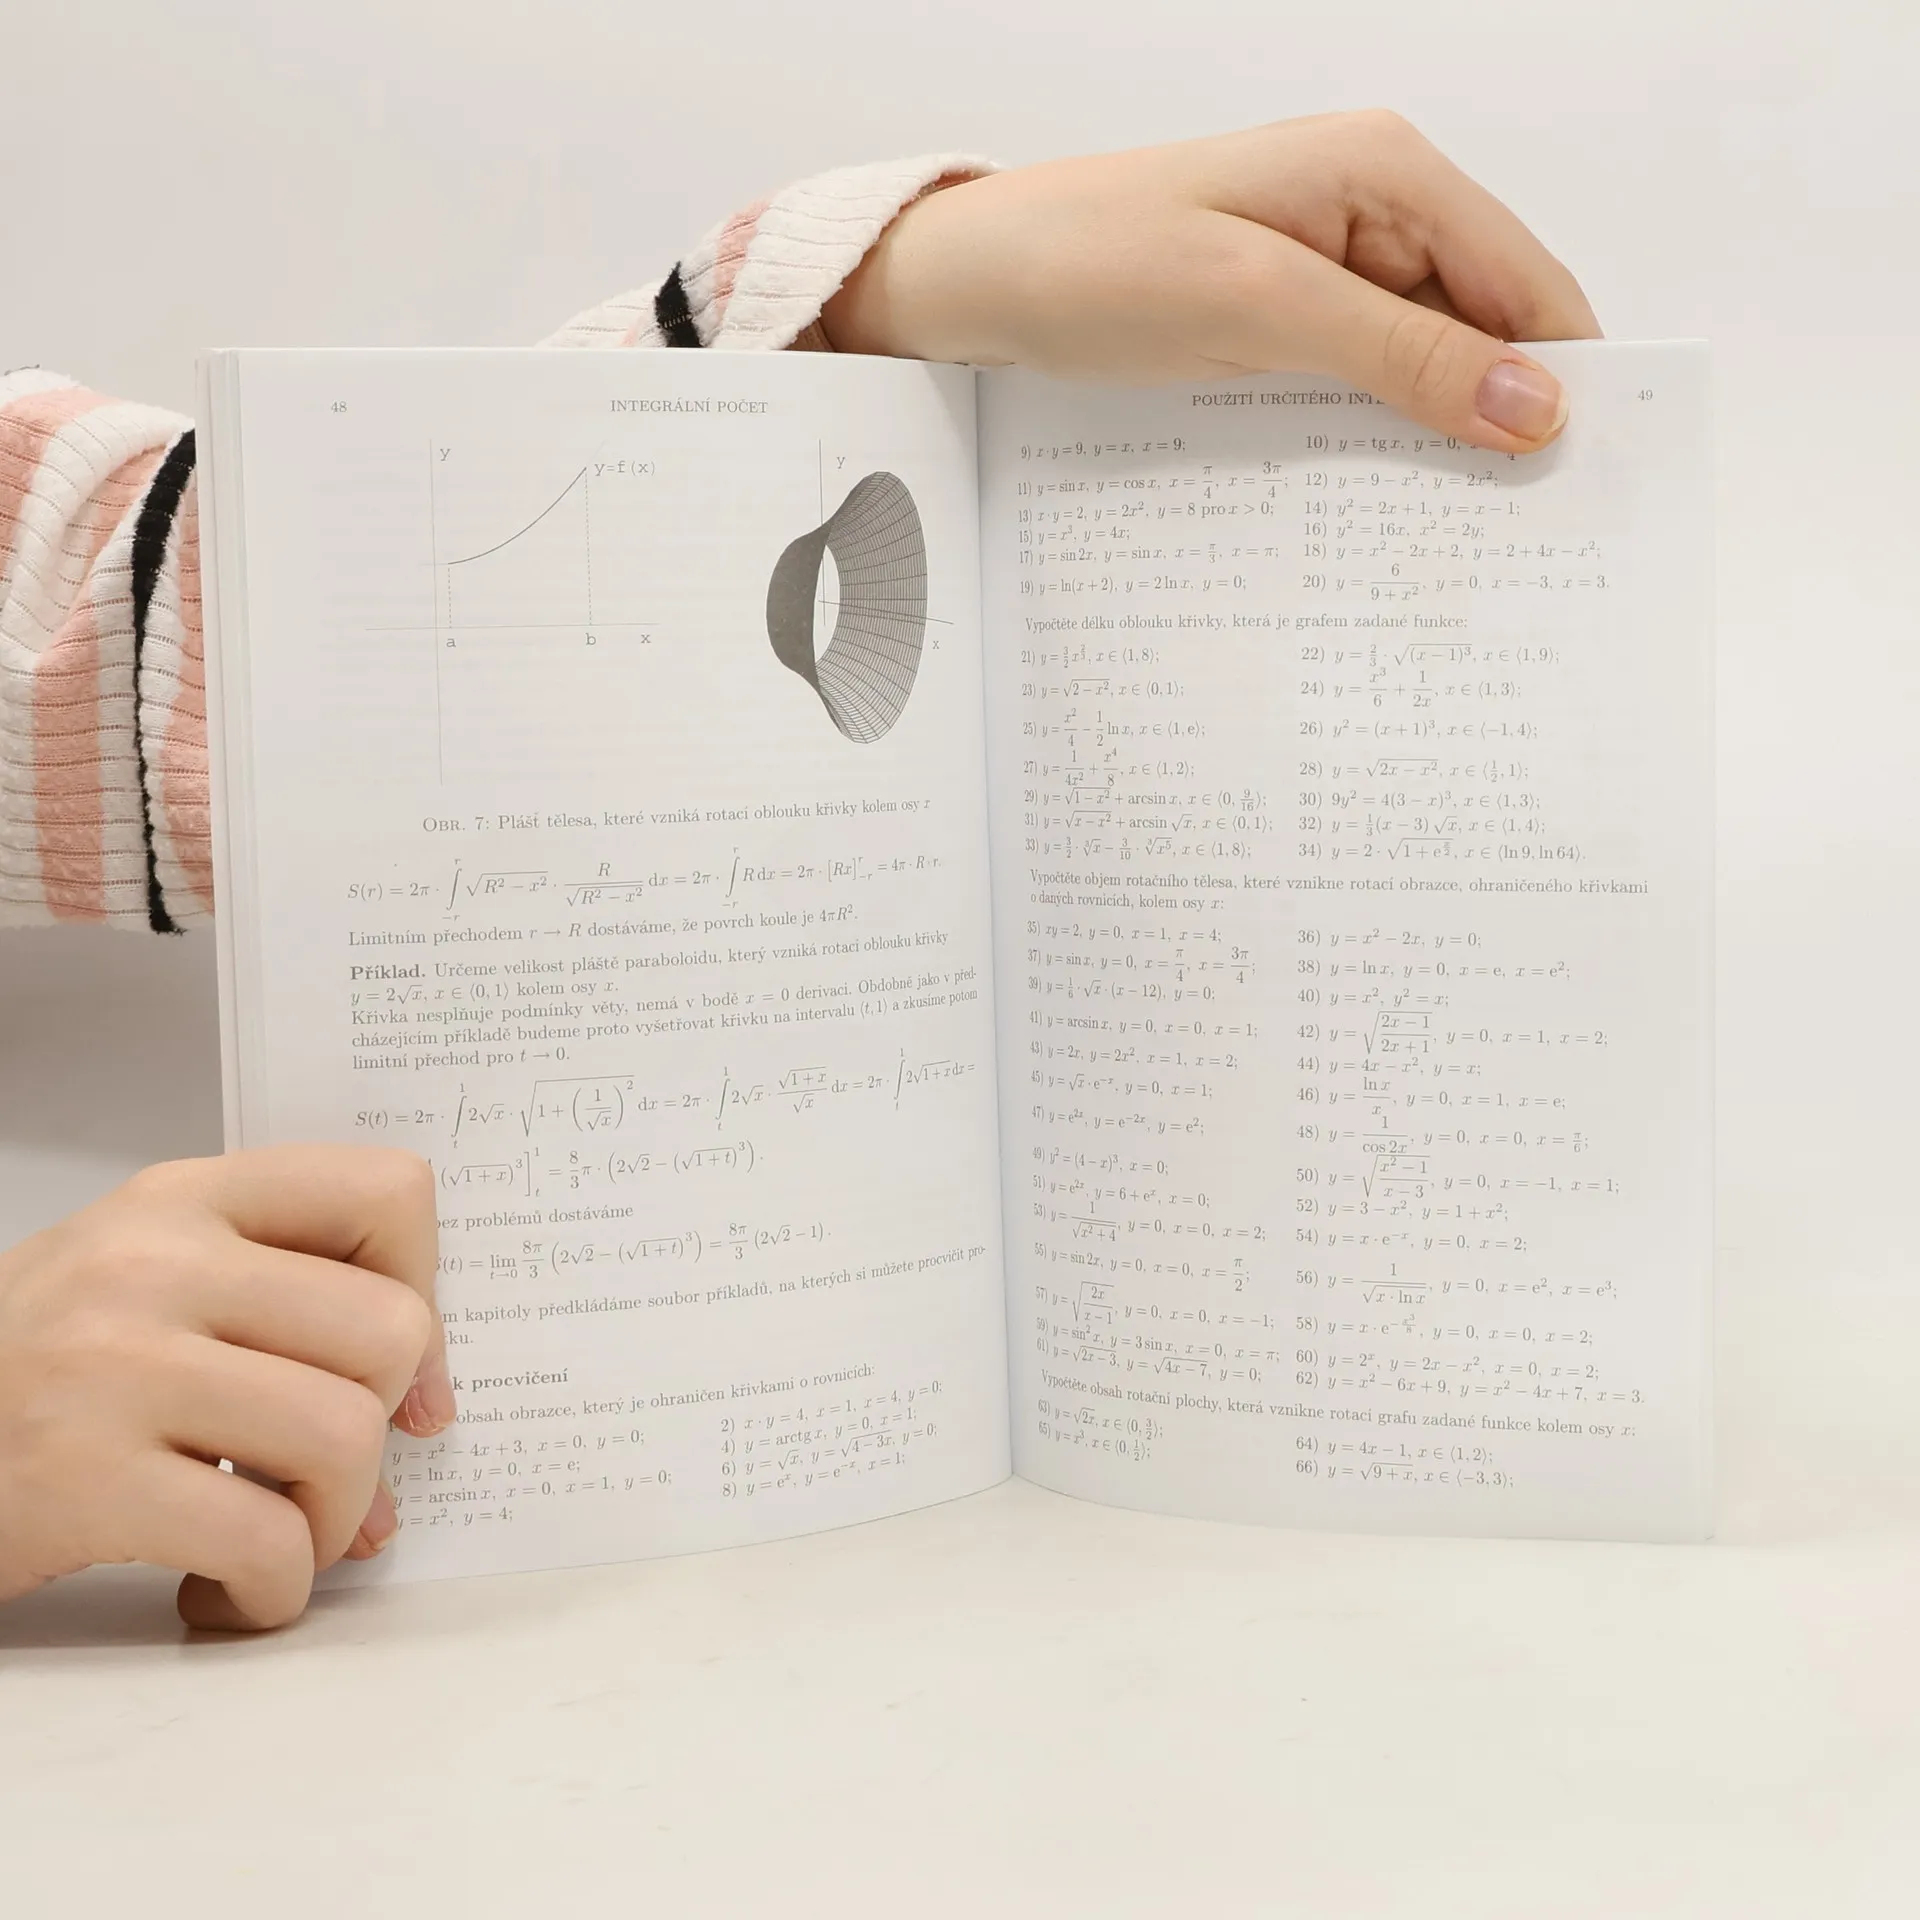 48
INTEGRÁLNÍ POČET
y
y=f(x)
a
b
x
y
x
OBR. 7: Plášť tělesa, které vzniká rotací oblouku křivky kolem osy x
S(r) = 2π · ∫_{−r}^{r} √(R² − x²) · R/√(R² − x²) dx = 2π · ∫_{−r}^{r} R dx = 2π · [Rx]_{−r}^{r} = 4π · R · r.
Limitním přechodem r → R dostáváme, že povrch koule je 4πR².
Příklad. Určeme velikost pláště paraboloidu, který vzniká rotací oblouku křivky
y = 2√x, x ∈ ⟨0, 1⟩ kolem osy x.
Křivka nesplňuje podmínky věty, nemá v bodě x = 0 derivaci. Obdobně jako v před-
cházejícím příkladě budeme proto vyšetřovat křivku na intervalu ⟨t, 1⟩ a zkusíme potom
limitní přechod pro t → 0.
S(t) = 2π · ∫_{t}^{1} 2√x · √(1 + (1/√x)²) dx = 2π · ∫_{t}^{1} 2√x · √(1+x)/√x dx = 2π · ∫_{t}^{1} 2√(1+x) dx =
(√(1+x))³]_{t}^{1} = 8/3 π · (2√2 − (√(1+t))³).
bez problémů dostáváme
(t) = lim_{t→0} 8π/3 (2√2 − (√(1+t))³) = 8π/3 (2√2 − 1).
kapitoly předkládáme soubor příkladů, na kterých si můžete procvičit pro-
k procvičení
obsah obrazce, který je ohraničen křivkami o rovnicích:
y = x² − 4x + 3, x = 0, y = 0; 2) x · y = 4, x = 1, x = 4, y = 0;
y = ln x, y = 0, x = e; 4) y = arctg x, y = 0, x = 1;
y = arcsin x, x = 0, x = 1, y = 0; 6) y = √x, y = √(4 − 3x), y = 0;
y = x², y = 4; 8) y = eˣ, y = e⁻ˣ, x = 1;
POUŽITÍ URČITÉHO
49
9) x · y = 9, y = x, x = 9; 10) y = tg x, y = 0,
11) y = sin x, y = cos x, x = π/4, x = 3π/4; 12) y = 9 − x², y = 2x²;
13) x · y = 2, y = 2x², y = 8 pro x > 0; 14) y² = 2x + 1, y = x − 1;
15) y = x³, y = 4x; 16) y² = 16x, x² = 2y;
17) y = sin 2x, y = sin x, x = π/3, x = π; 18) y = x² − 2x + 2, y = 2 + 4x − x²;
19) y = ln(x + 2), y = 2 ln x, y = 0; 20) y = 6/(9 + x²), y = 0, x = −3, x = 3.
Vypočtěte délku oblouku křivky, která je grafem zadané funkce:
21) y = 3/2 x^(2/3), x ∈ ⟨1, 8⟩; 22) y = 2/3 · √((x − 1)³), x ∈ ⟨1, 9⟩;
23) y = √(2 − x²), x ∈ ⟨0, 1⟩; 24) y = x³/6 + 1/(2x), x ∈ ⟨1, 3⟩;
25) y = x²/4 − 1/2 ln x, x ∈ ⟨1, e⟩; 26) y² = (x + 1)³, x ∈ ⟨−1, 4⟩;
27) y = 1/(4x²) + x⁴/8, x ∈ ⟨1, 2⟩; 28) y = √(2x − x²), x ∈ ⟨1/2, 1⟩;
29) y = √(1 − x²) + arcsin x, x ∈ ⟨0, 9/16⟩; 30) 9y² = 4(3 − x)³, x ∈ ⟨1, 3⟩;
31) y = √(x − x²) + arcsin √x, x ∈ ⟨0, 1⟩; 32) y = 1/3 (x − 3) √x, x ∈ ⟨1, 4⟩;
33) y = 3/2 · ∛x − 3/10 · ∛(x⁵), x ∈ ⟨1, 8⟩; 34) y = 2 · √(1 + e^(x/2)), x ∈ ⟨ln 9, ln 64⟩.
Vypočtěte objem rotačního tělesa, které vznikne rotací obrazce, ohraničeného křivkami
o daných rovnicích, kolem osy x:
35) xy = 2, y = 0, x = 1, x = 4; 36) y = x² − 2x, y = 0;
37) y = sin x, y = 0, x = π/4, x = 3π/4; 38) y = ln x, y = 0, x = e, x = e²;
39) y = 1/6 · √x · (x − 12), y = 0; 40) y = x², y² = x;
41) y = arcsin x, y = 0, x = 0, x = 1; 42) y = √((2x − 1)/(2x + 1)), y = 0, x = 1, x = 2;
43) y = 2x, y = 2x², x = 1, x = 2; 44) y = 4x − x², y = x;
45) y = √x · e⁻ˣ, y = 0, x = 1; 46) y = ln x/x, y = 0, x = 1, x = e;
47) y = e²ˣ, y = e⁻²ˣ, y = e²; 48) y = 1/cos 2x, y = 0, x = 0, x = π/6;
49) y² = (4 − x)³, x = 0; 50) y = √((x² − 1)/(x − 3)), y = 0, x = −1, x = 1;
51) y = e²ˣ, y = 6 + eˣ, x = 0; 52) y = 3 − x², y = 1 + x²;
53) y = 1/√(x² + 4), y = 0, x = 0, x = 2; 54) y = x · e⁻ˣ, y = 0, x = 2;
55) y = sin 2x, y = 0, x = 0, x = π/2; 56) y = 1/√(x · ln x), y = 0, x = e², x = e³;
57) y = √(2x/(x − 1)), y = 0, x = 0, x = −1; 58) y = x · e^(−x³/8), y = 0, x = 0, x = 2;
59) y = sin² x, y = 3 sin x, x = 0, x = π; 60) y = 2ˣ, y = 2x − x², x = 0, x = 2;
61) y = √(2x − 3), y = √(4x − 7), y = 0; 62) y = x² − 6x + 9, y = x² − 4x + 7, x = 3.
Vypočtěte obsah rotační plochy, která vznikne rotací grafu zadané funkce kolem osy x:
63) y = √(2x), x ∈ ⟨0, 3/2⟩; 64) y = 4x − 1, x ∈ ⟨1, 2⟩;
65) y = x³, x ∈ ⟨0, 1/2⟩; 66) y = √(9 + x), x ∈ ⟨−3, 3⟩;